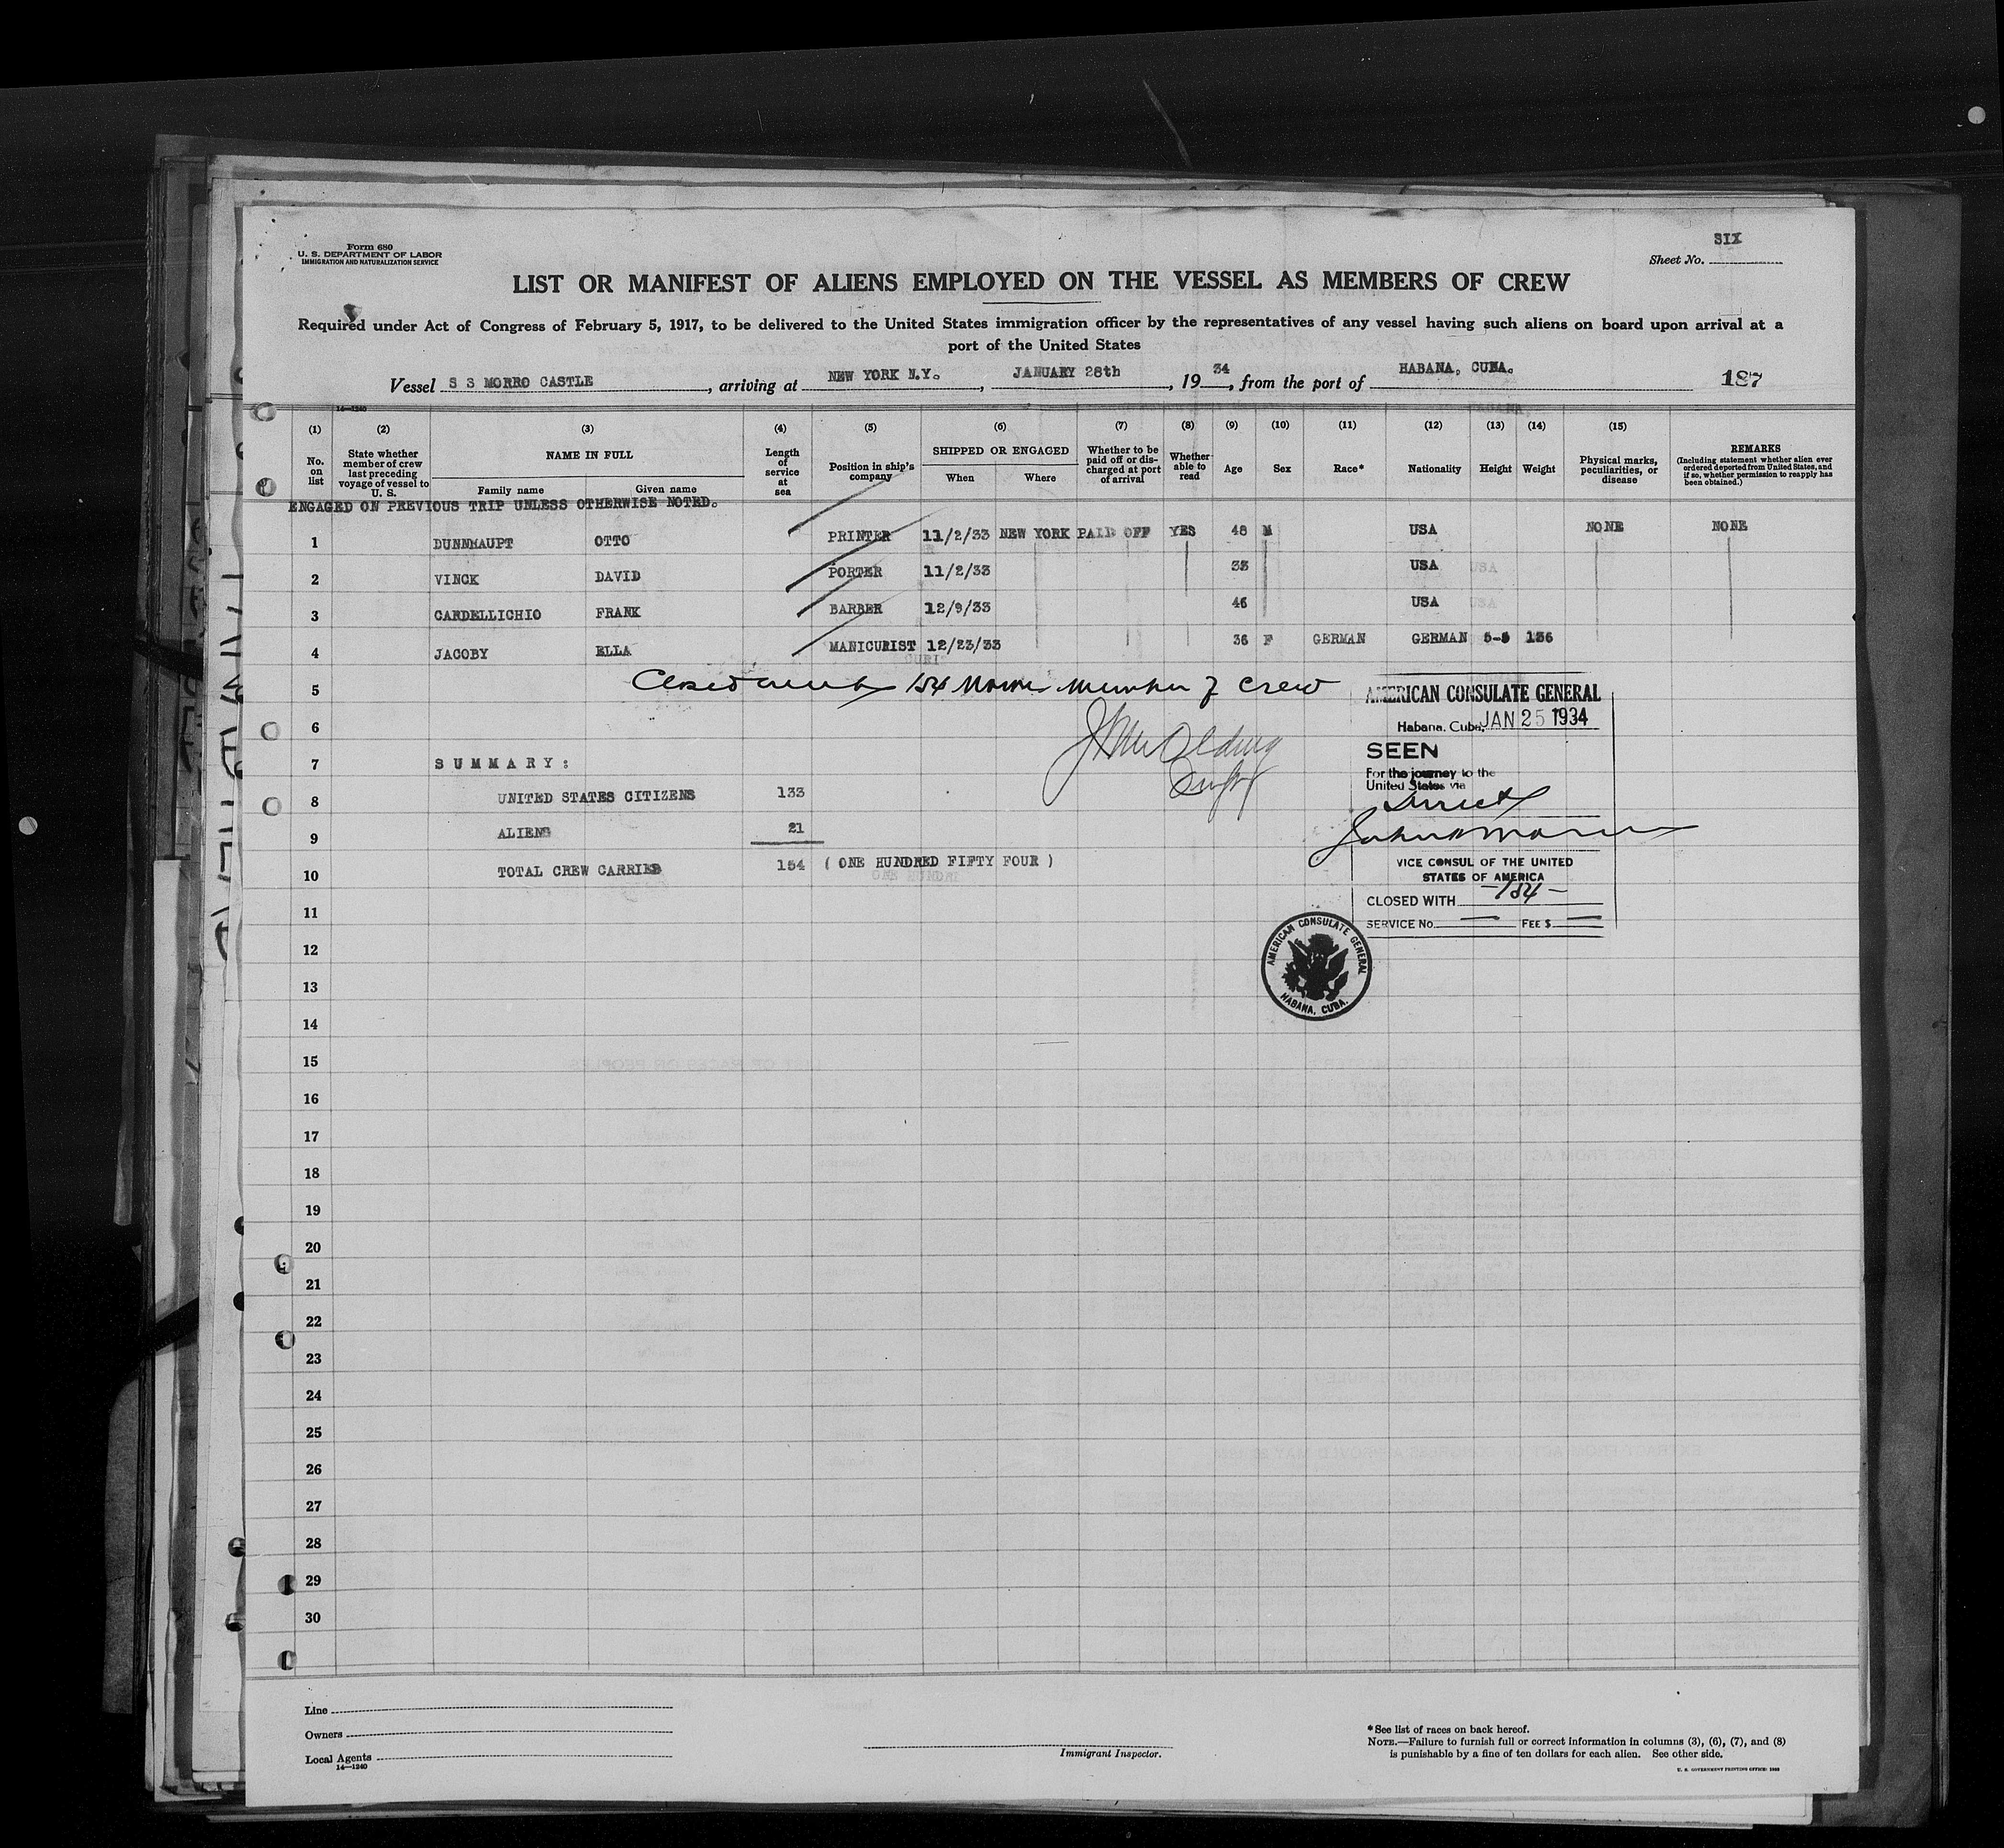 Form 680
U. S. DEPARTMENT OF LABOR
IMMIGRATION AND NATURALIZATION SERVICE
SIX
Sheet No.
LIST OR MANIFEST OF ALIENS EMPLOYED ON THE VESSEL AS MEMBERS OF CREW
Required under Act of Congress of February 5, 1917, to be delivered to the United States immigration officer by the representatives of any vessel having such aliens on board upon arrival at a
port of the United States
Vessel S S MORRO CASTLE, arriving at NEW YORK N.Y., JANUARY 28th, 1934, from the port of HABANA, CUBA. 187
14—1240
(1) (2) (3) (4) (5) (6) (7) (8) (9) (10) (11) (12) (13) (14) (15)
No. on list
State whether member of crew last preceding voyage of vessel to U. S.
NAME IN FULL
Family name Given name
Length of service at sea
Position in ship's company
SHIPPED OR ENGAGED
When Where
Whether to be paid off or discharged at port of arrival
Whether able to read
Age
Sex
Race*
Nationality
Height
Weight
Physical marks, peculiarities, or disease
REMARKS
(Including statement whether alien ever ordered deported from United States, and if so, whether permission to reapply has been obtained.)
ENGAGED ON PREVIOUS TRIP UNLESS OTHERWISE NOTED.
1 DUNNHAUPT OTTO PRINTER 11/2/33 NEW YORK PAID OFF YES 48 M USA NONE NONE
2 VINCK DAVID PORTER 11/2/33 33 USA
3 CARDELLICHIO FRANK BARBER 12/9/33 46 USA
4 JACOBY ELLA MANICURIST 12/23/33 36 F GERMAN GERMAN 5-5 136
5 Closed with 154 Names Member of Crew
6
7 SUMMARY:
8 UNITED STATES CITIZENS 133
9 ALIENS 21
10 TOTAL CREW CARRIED 154 ( ONE HUNDRED FIFTY FOUR )
AMERICAN CONSULATE GENERAL
Habana, Cuba, JAN 25 1934
SEEN
For the journey to the
United States via
Direct
VICE CONSUL OF THE UNITED
STATES OF AMERICA
CLOSED WITH —154—
SERVICE No. — FEE $ —
AMERICAN CONSULATE GENERAL
HABANA, CUBA.
11
12
13
14
15
16
17
18
19
20
21
22
23
24
25
26
27
28
29
30
Line
Owners
Local Agents
14—1240
Immigrant Inspector.
*See list of races on back hereof.
NOTE.—Failure to furnish full or correct information in columns (3), (6), (7), and (8)
is punishable by a fine of ten dollars for each alien. See other side.